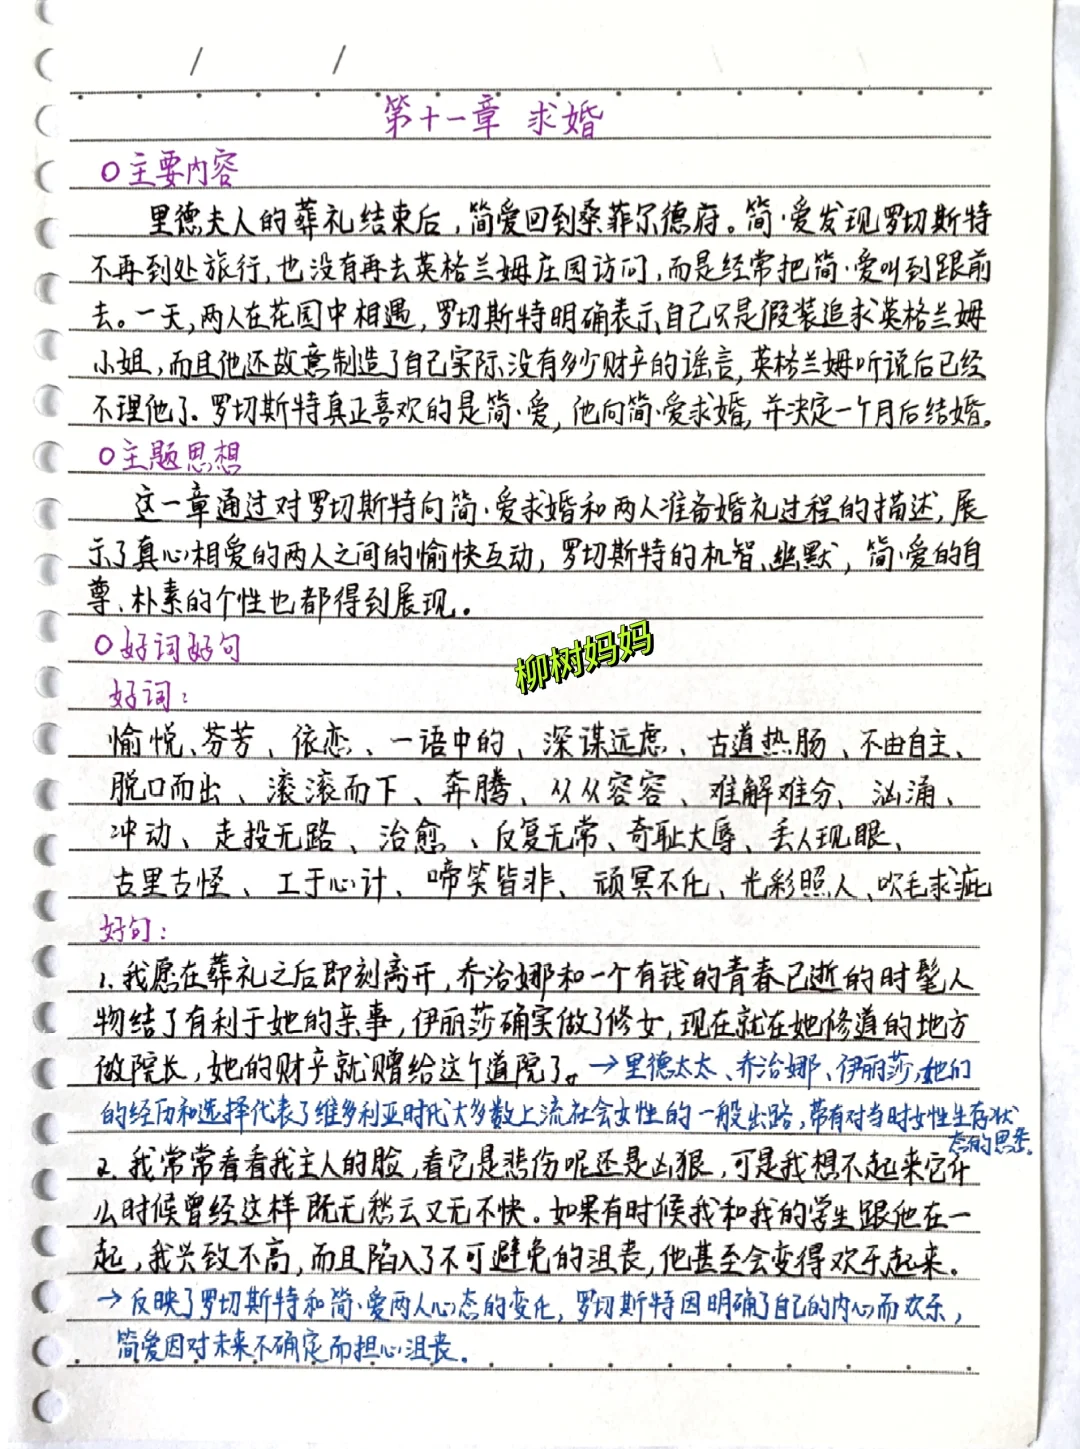 第十一章 求婚
○主要内容
里德夫人的葬礼结束后，简爱回到桑菲尔德府。简·爱发现罗切斯特
不再到处旅行，也没有再去英格兰姆庄园访问，而是经常把简·爱叫到跟前
去。一天，两人在花园中相遇，罗切斯特明确表示，自己只是假装追求英格兰姆
小姐，而且他还故意制造了自己实际没有多少财产的谣言，英格兰姆听说后已经
不理他了。罗切斯特真正喜欢的是简·爱，他向简·爱求婚，并决定一个月后结婚。
○主题思想
这一章通过对罗切斯特向简·爱求婚和两人准备婚礼过程的描述，展
示了真心相爱的两人之间的愉快互动，罗切斯特的机智、幽默，简·爱的自
尊、朴素的个性也都得到展现。
○好词好句
柳树妈妈
好词：
愉悦、芬芳、依恋、一语中的、深谋远虑、古道热肠、不由自主、
脱口而出、滚滚而下、奔腾、从从容容、难解难分、汹涌、
冲动、走投无路、治愈、反复无常、奇耻大辱、丢人现眼、
古里古怪、工于心计、啼笑皆非、顽冥不化、光彩照人、吹毛求疵
好句：
1.我愿在葬礼之后即刻离开，乔治娜和一个有钱的青春已逝的时髦人
物结了有利于她的亲事，伊丽莎确实做了修女，现在就在她修道的地方
做院长，她的财产就赠给这个道院了。→里德太太、乔治娜、伊丽莎，她们
的经历和选择代表了维多利亚时代大多数上流社会女性的一般出路，带有对当时女性生存状
态的思考。
2.我常常看看我主人的脸，看它是悲伤呢还是凶狠，可是我想不起来它什
么时候曾经这样既无愁云又无不快。如果有时候我和我的学生跟他在一
起，我兴致不高，而且陷入了不可避免的沮丧，他甚至会变得欢乐起来。
→反映了罗切斯特和简·爱两人心态的变化，罗切斯特因明确了自己的内心而欢乐，
简爱因对未来不确定而担心沮丧。